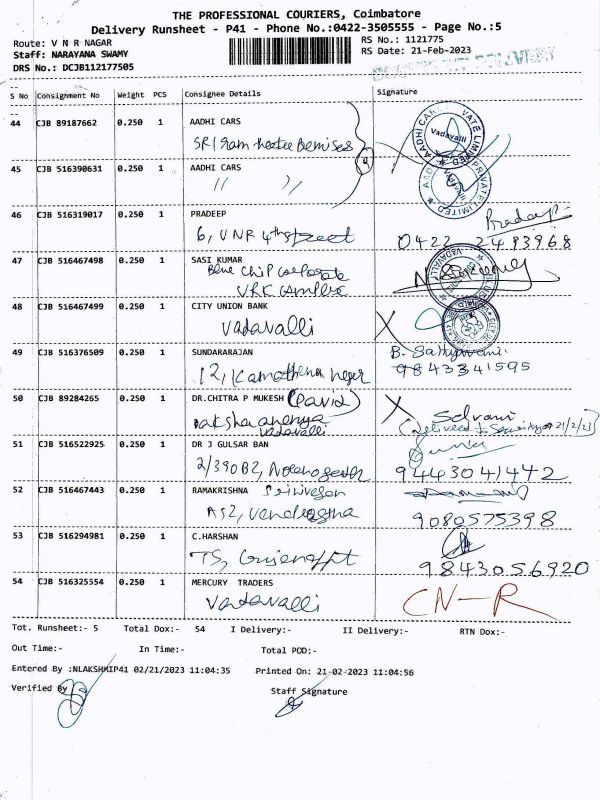 THE PROFESSIONAL COURIERS, Coimbatore
Delivery Runsheet - P41 - Phone No.:0422-3505555 - Page No.:5
Route: V N R NAGAR RS No.: 1121775
Staff: NARAYANA SWAMY RS Date: 21-Feb-2023
DRS No.: DCJB112177505
S No Consignment No Weight PCS Consignee Details Signature
44 CJB 89187662 0.250 1 AADHI CARS
Vadavalli
45 CJB 516390631 0.250 1 AADHI CARS
" "
46 CJB 516319017 0.250 1 PRADEEP Pradeep
6, VNR 4th street 0422 2483968
47 CJB 516467498 0.250 1 SASI KUMAR
Blue Chip Corporate
VRK Complex
48 CJB 516467499 0.250 1 CITY UNION BANK
Vadavalli
49 CJB 516376509 0.250 1 SUNDARARAJAN
12, 9843341595
50 CJB 89284265 0.250 1 DR.CHITRA P MUKESH (David) Selvani
Vadavalli
51 CJB 516522925 0.250 1 DR J GULSAR BAN
2/390B2, 9443041442
52 CJB 516467443 0.250 1 RAMAKRISHNA Srinivasan
A52, 9080575398
53 CJB 516294981 0.250 1 C.HARSHAN
9843056920
54 CJB 516325554 0.250 1 MERCURY TRADERS
Vadavalli CN-R
Tot. Runsheet:- 5 Total Dox:- 54 I Delivery:- II Delivery:- RTN Dox:-
Out Time:- In Time:- Total POD:-
Entered By :NLAKSHMIP41 02/21/2023 11:04:35 Printed On: 21-02-2023 11:04:56
Verified By Staff Signature